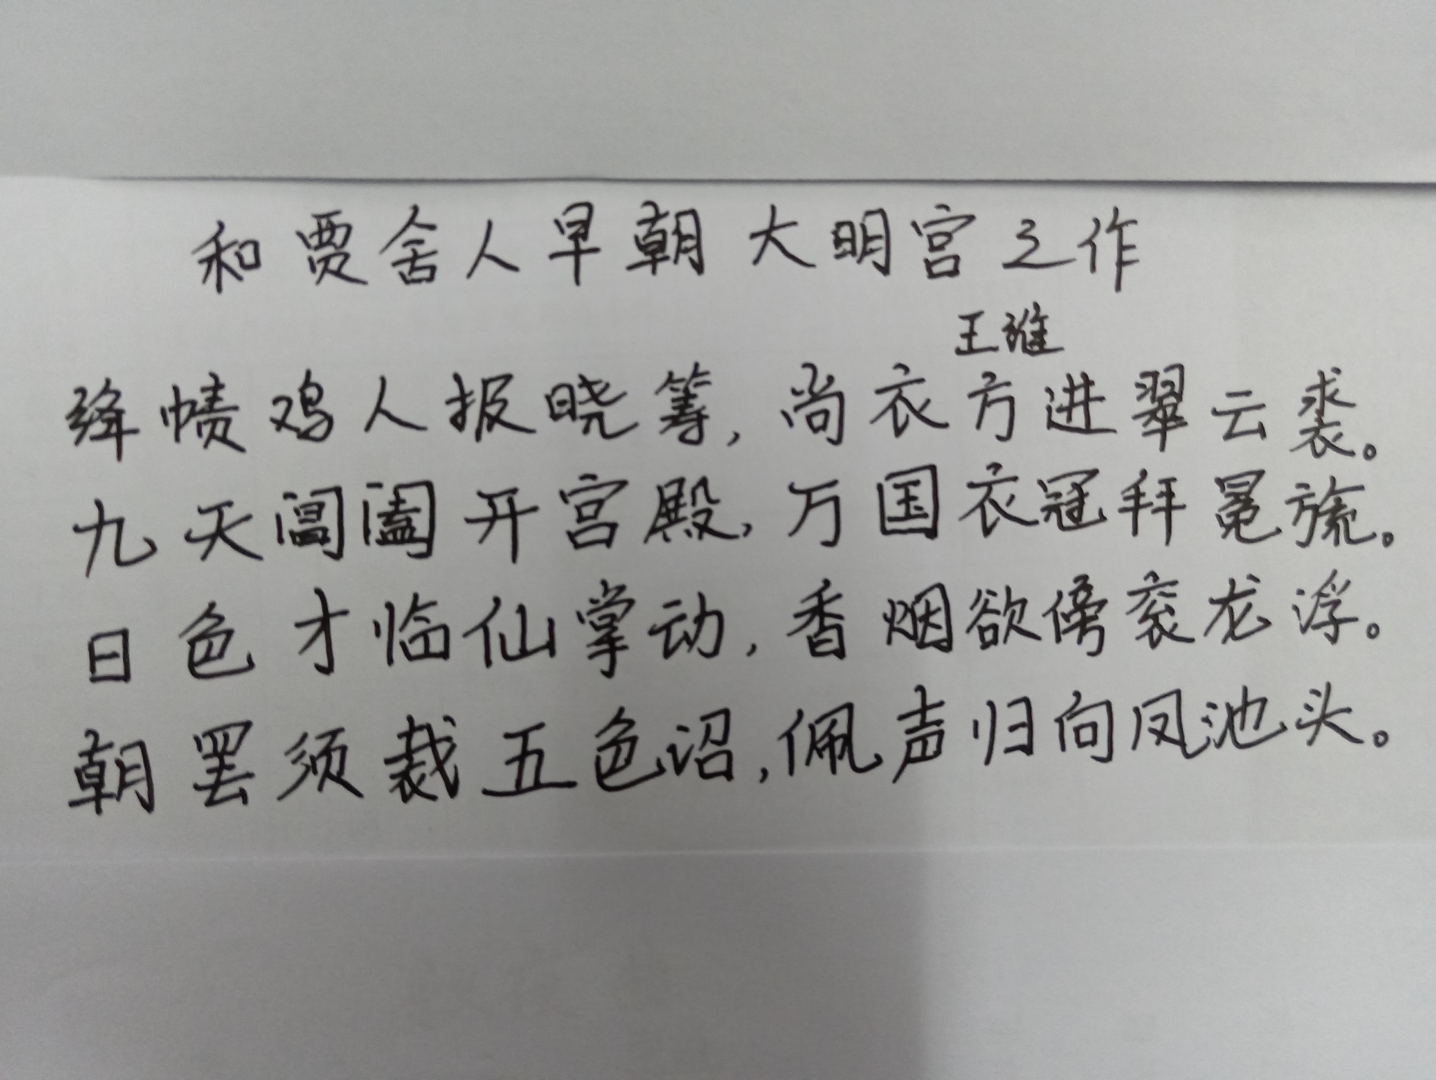 和贾舍人早朝大明宫之作
王维
绛帻鸡人报晓筹,尚衣方进翠云裘。
九天阊阖开宫殿,万国衣冠拜冕旒。
日色才临仙掌动,香烟欲傍衮龙浮。
朝罢须裁五色诏,佩声归向凤池头。